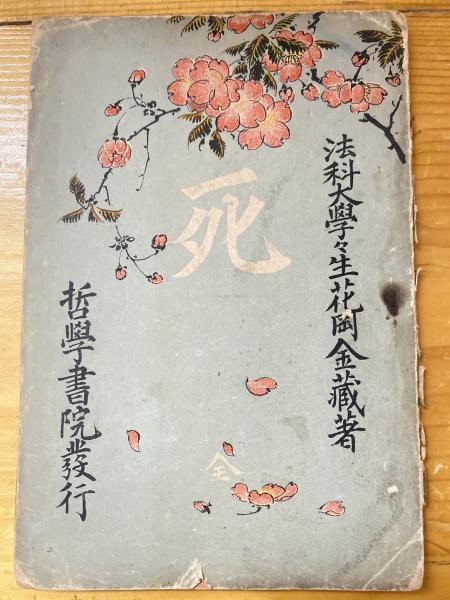 法科大學々生花岡金藏著
死
全
哲學書院發行